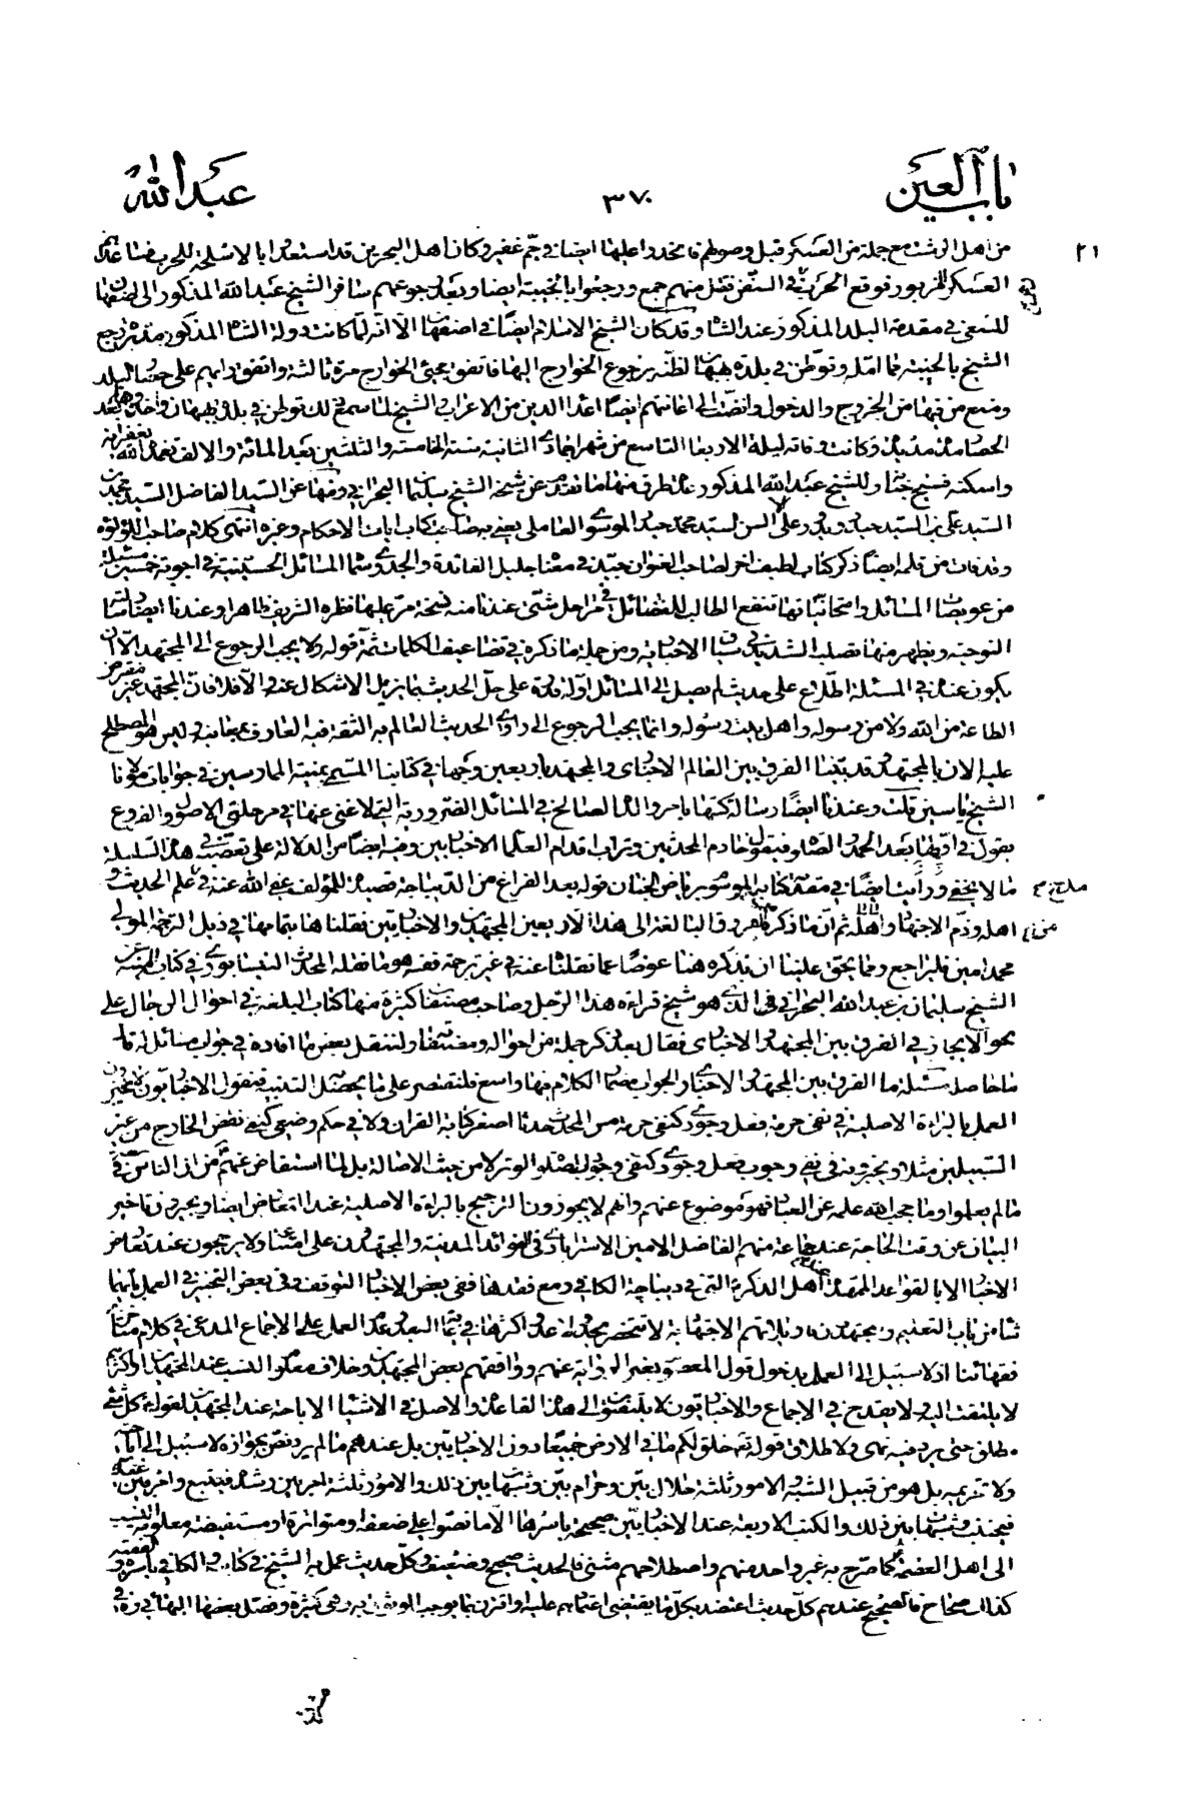 باب العين
٣٧٠
عبد الله
٢١
من اهل الرشت مع جملة من العسكر قبل وصولهم فانحدروا عليها ايضا في جم غفير وكان اهل البحرين قد استعدوا بالاسلحة للحرب فشاعدهم
العسكر المزبور فوقع الحرب في السفن فقتل منهم جمع ورجعوا بالخيبة ايضا وبعد رجوعهم سافر الشيخ عبد الله المذكور الى اصفهان
للسعى في مقدمة البلد المذكور عند الشاه وقد كان الشيخ الاسلام ايضا في اصفهان الا انه لما كانت دولة الشاه المذكور مدبرة رجع
الشيخ بالخيبة مما امله وتوطن في بلدة بهبهان لظنه برجوع الخوارج اليها فاتفق مجئ الخوارج مرة ثالثة واتفق رايهم على حصار البلد
ومنع من فيها من الخروج والدخول وانضم الى اعانتهم ايضا اعداء الدين من الاعراب والشيخ لما سمع ذلك توطن في بلدة بهبهان واخذوها بعد
الحصار مدة مديدة وكانت وفاته ليلة الاربعا التاسع من شهر جمادى الثانية سنة الخامسة والثلثين بعد المائة والالف تغمده الله بغفرانه
واسكنه فسيح جنانه وللشيخ عبد الله المذكور عدة طرق منها ما تقدم عن شيخه الشيخ سليمان البحراني ومنها عن السيد الفاضل السيد محمد بن
السيد على بن السيد حيدر على السن لسيد محمد حيدر الموسوي العاملى يعنى به صاحب كتاب ايات الاحكام وغيره انتهى كلام صاحب اللؤلؤة
وقد فات من قلمه ايضا ذكر كتاب لطيف اخر لصاحب العنوان جيد في معناه جليل الفائدة والجدوى سماه المسائل الحسينية في اجوبة خمسين مسئلة
من عويصات المسائل وامتحانياتها تنفع الطالب للفضائل في مراحل شتى عندنا منه نسخة مر عليها نظره الشريف ظاهرا وعندنا ايضا رسالته
التوحيد ويظهر منها تصلبه الشديد في شان الاخبارية ومن جملة ما ذكره في تضاعيف الكلمات ثمة قوله ولا يجب الرجوع الى المجتهد الا ان
يكون عنده في المسئلة اطلاع على حديث لم يصل الى المسائل او له قدرة على حل الحديث بما يزيل الاشكال عنه والا فلا فان المجتهد غير مفترض
الطاعة من الله ولا من رسوله واهل بيت رسوله وانما يجب الرجوع الى راوى الحديث العالم به الثقة فيه العارف بمعانيه وليس هو المصطلح
عليه الان بالمجتهد قد بينا الفرق بين العالم الاخبارى والمجتهد باربعين وجها في كتابنا المسمى بمنية الممارسين في جوابات مولانا
الشيخ ياسين قلت وعندنا ايضا رسالة كتبها باحر والده الصالح في المسائل الضرورية التى لا غنى عنها في مرحلتى الاصول والفروع
يقول في اولها بعد الحمد والصلوة فيقول خادم المحدثين وتراب اقدام العلماء الاخباريين وفيه ايضا من الدلالة على تعصبه في هذه السلسلة
ما لا يخفى ورأيت ايضا في مقدمة كتابه الموسوم برياض الجنان قوله بعد الفراغ من الديباجة قصيدة للمؤلف عفى الله عنه في علم الحديث و
اهله وذم الاجتهاد واهله ثم ان ما ذكره من فروق البالغة الى هذا الاربعين المجتهدين والاخباريين نقلنا هنا بتمامها في ذيل الترجمة المولى
محمد امين فليراجع ومما يحق علينا ان نذكره هنا عوضا عما نقلنا عنه في غير ترجمة نفسه هو ما نقله المحدث النيسابورى في كتاب
الشيخ سليمان بن عبد الله البحراني الذى هو شيخ قراءة هذا الرجل وصاحب مصنفات كثيرة منها كتاب البلغة في احوال الرجال على
نحو الايجاز في الفرق بين المجتهد والاخبارى فقال بعد ذكر جملة من احواله ومصنفاته ولننقل بعض ما افاده في جواب مسائل له قال
ما حاصله مسئلة ما الفرق بين المجتهد والاخبارى الجواب مضمار الكلام فيها واسع فلنقتصر على ما يحصل التنبيه فنقول الاخباريون لا يجيزون
العمل بالبراءة الاصلية في نفى حرمة فعل وجودى كنفى حرمة مس المحدث حدثا اصغر كتابة القران ولا في حكم وضعى كنفى نقض الخارج من غير
السبيلين مثلا ويجيزونه في نفى وجوب فعل وجودى كنفى وجوب صلوة الوتر لا من حيث الاصالة بل لما استفاض عنهم من ان الناس في سعة
ما لم يعلموا وما حجب الله علمه عن العباد فهو موضوع عنهم وانهم لا يجوزون الترجيح بالبراءة الاصلية عند التعارض ايضا ويجيزون تاخير
البيان عن وقت الحاجة عند جماعة منهم الفاضل الامين الاسترابادى في الفوائد المدنية والمجتهدون على امتناعه ولا يرجحون عند تعارض
الاخبار الا بالقواعد الممهدة عن اهل الذكر التى في ديباجة الكافي ومع فقدها ففى بعض الاخبار التوقف وفي بعض التخيير في العمل بايهما
شاء من باب التسليم ومجتهدون وترجيحاتهم الاجتهادية لا تنحصر بحد عدم العمل على الاجماع المدعى في كلام متأخرى
فقهائنا اذ لا سبيل الى العلم بدخول قول المعصوم بغير الرواية عنه ووافقهم بعض المجتهدين وخلاف معلوم النسب عند المجتهدين او اكثرهم
لا يلتفت اليه لا يقدح في الاجماع والاخباريون لا يلتفتون الى هذا القاعدة والاصل في الاشياء الاباحة عند المجتهدين لقوله كل شئ
مطلق حتى يرد فيه نهى ولاطلاق قوله تع خلق لكم ما في الارض جميعا دون الاخباريين بل عندهم ما لم يرد نص بجوازه لا سبيل الى اباحته
ولا تحريمه بل هو من قبيل الشبهة الامور ثلثة حلال بين وحرام بين وشبهات بين ذلك والامور ثلثة امر بين رشده فيتبع وامر بين غيه
فيجتنب وشبهات بين ذلك والكتب الاربعة عند الاخباريين صحيحة باسرها الا ما نصوا على ضعفه او متواترة او مستفيضة معلومة النسب
الى اهل العصمة كما صرح به غير واحد منهم واصطلاحهم مثنى فالحديث صحيح وضعيف وكل حديث عمل به الشيخ في كتابه والكافي باسره والفقيه
كذلك صحاح فالصحيح عندهم كل حديث اعتضد بكل ما يقتضى اعتمادهم عليه او اقترن بما يوجب الوثوق به وهى كثيرة وفصل بعضها البهائى في